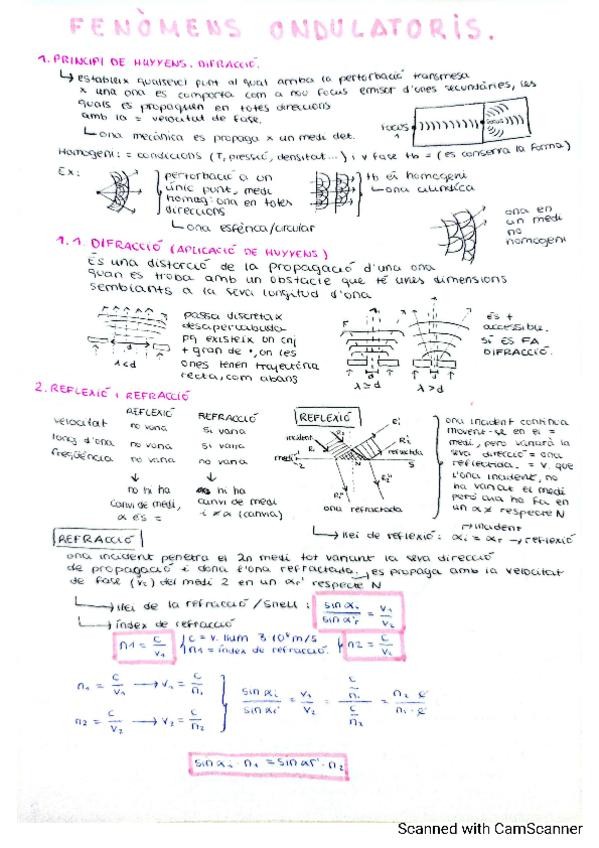 FENÒMENS ONDULATORIS.
1. PRINCIPI DE HUYYENS. DIFRACCIÓ.
↳ estableix qualsevol punt al qual arriba la pertorbació transmesa
x una ona es comporta com a nou focus emisor d'ones secundàries, les
quals es propaguen en totes direccions
amb la = velocitat de fase.
focus 1
focus
↳ ona mecànica es propaga x un medi det.
Homogeni: = condicions (T, pressió, densitat...) i v fase tb = (es conserva la forma)
Ex:
pertorbació a un
únic punt, medi
homog: ona en totes
direccions
↳ ona esfèrica/circular
tb ei homogeni
↳ ona cilíndrica
ona en
un medi
no
homogeni
1.1. DIFRACCIÓ (APLICACIÓ DE HUYYENS)
És una distorció de la propagació d'una ona
quan es troba amb un obstacle que té unes dimensions
semblants a la seva longitud d'ona
d
λ<d
passa discreta x
desapercebuda
pq existeix on cnj
+ gran de •, on les
ones tenen trajectòria
recta, com abans
F
d
λ≥d
λ>d
és +
accessible.
SÍ ES FA
DIFRACCIÓ.
2. REFLEXIÓ i REFRACCIÓ
REFLEXIÓ
REFRACCIÓ
velocitat no varia sí varia
long. d'ona no varia sí varia
freqüència no varia no varia
no hi ha
canvi de medi,
α és =
hi ha
canvi de medi
i ≠ α (canvia)
REFLEXIÓ
incident
medi 1
2
refractada
N
S
ona refractada
ona incident continua
movent-se en el =
medi, però variarà la
seva direcció = ona
reflectada. = v. que
l'ona incident, no
ha variat el medi
però ara ho fa en
un α ≠ respecte N
→ incident
↳ llei de reflexió: αi = αr → reflexió
REFRACCIÓ
ona incident penetra el 2n medi tot variant la seva direcció
de propagació i dona a l'ona refractada. → es propaga amb la velocitat
de fase (v2) del medi 2 en un αr' respecte N
↳ llei de la refracció / Snell: sin αi / sin αr' = v1 / v2
↳ índex de refracció
n1 = c/v1
c = v. llum 3·10⁸ m/s
n1 = índex de refracció.
n2 = c/v2
n1 = c/v1 → v1 = c/n1
n2 = c/v2 → v2 = c/n2
sin αi / sin αr' = v1/v2 = (c/n1) / (c/n2) = n2·c / n1·c
sin αi · n1 = sin αr' · n2
Scanned with CamScanner